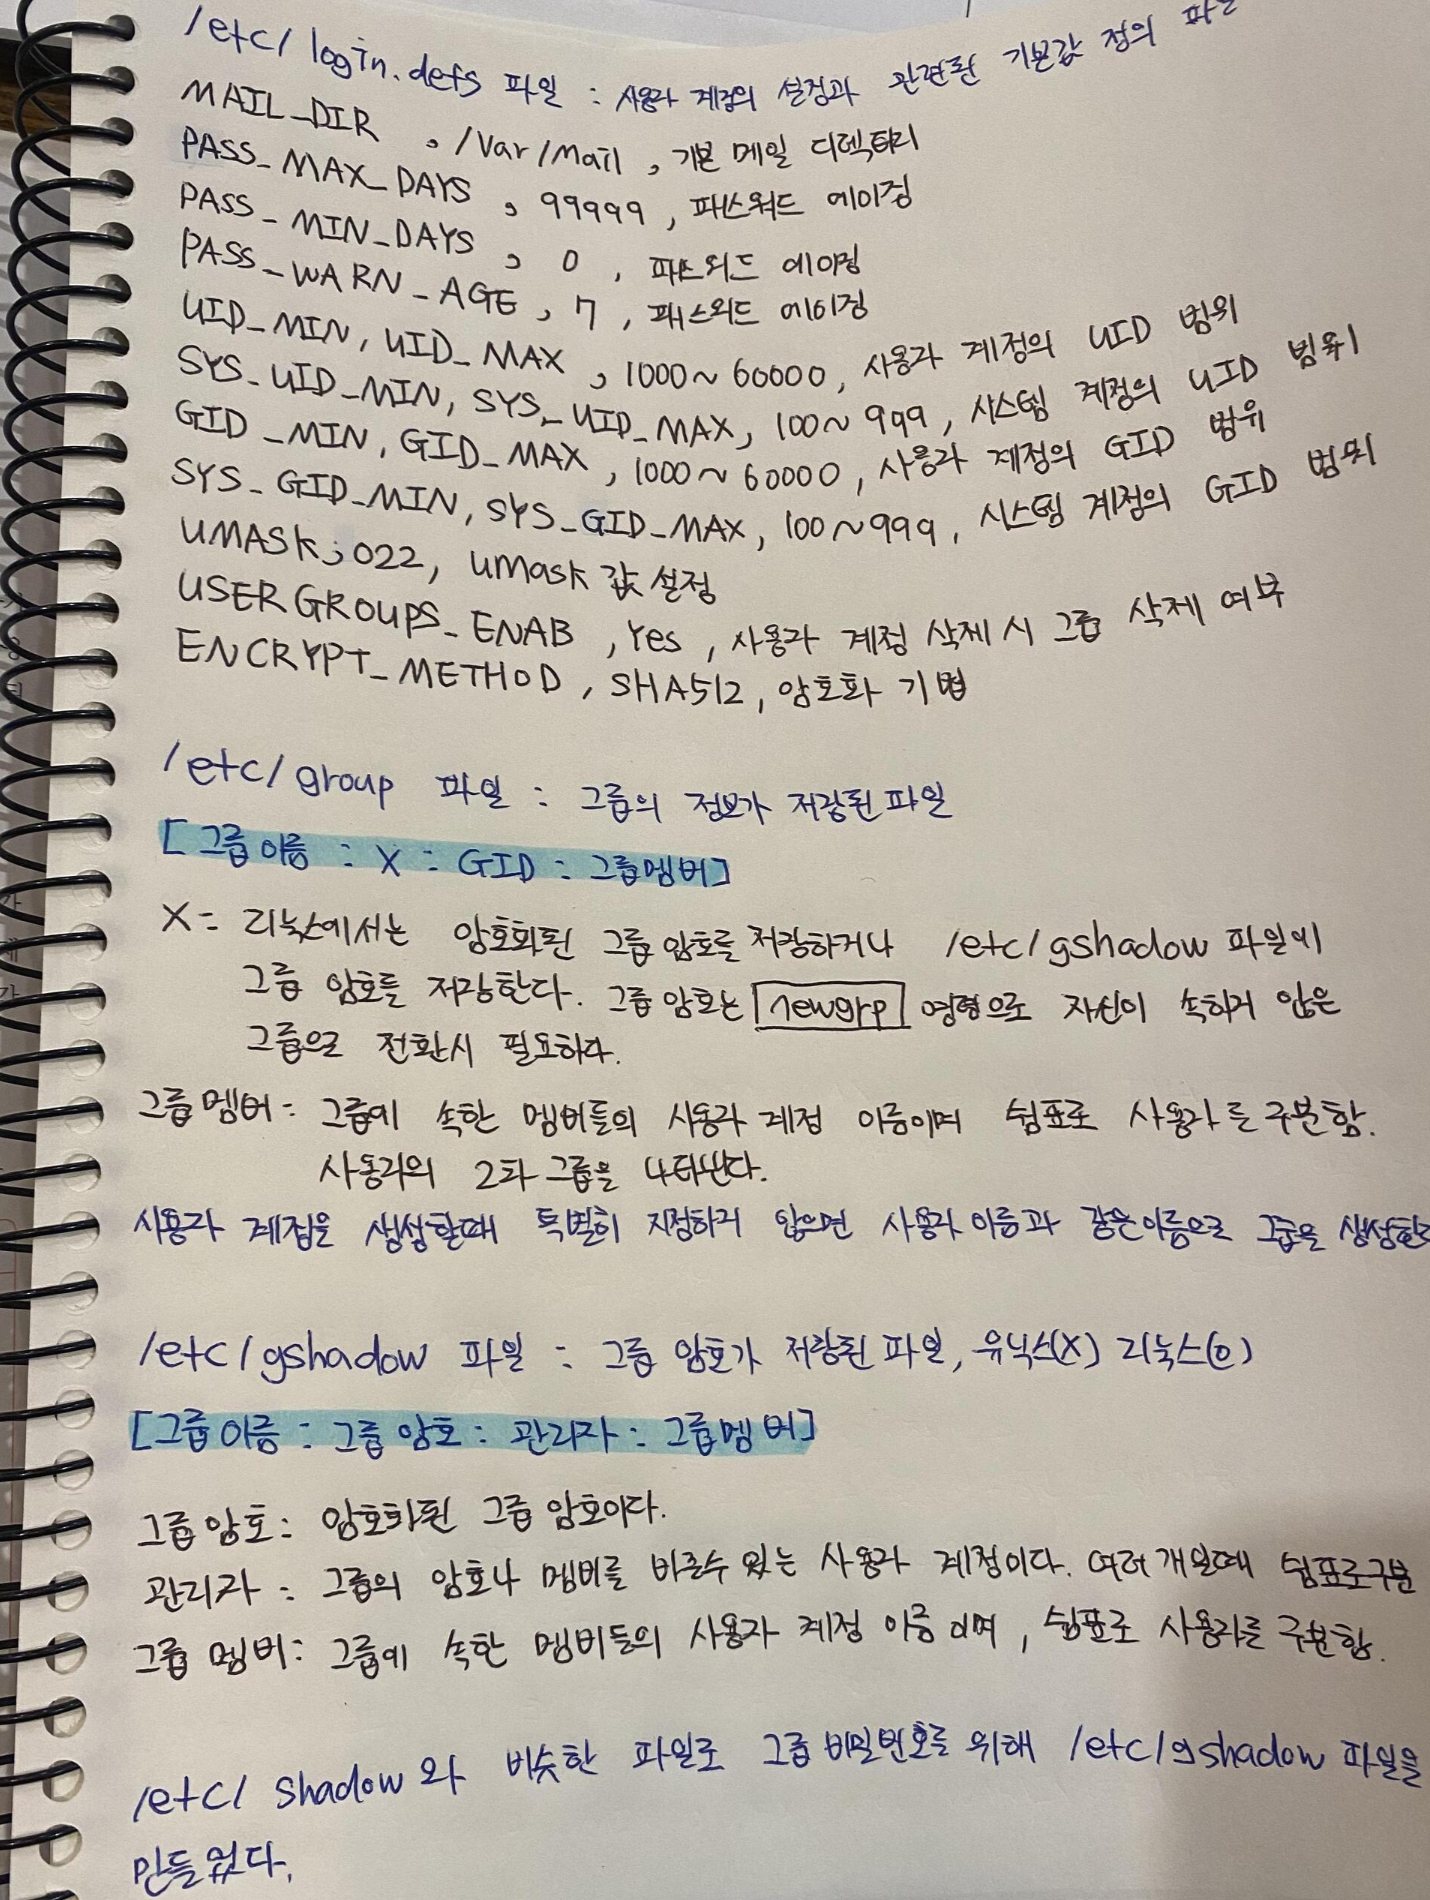 /etc/ login.defs 파일 : 사용자 계정의 설정과 관련된 기본값 정의 파일
MAIL_DIR , /var/mail , 기본 메일 디렉터리
PASS_MAX_DAYS , 99999 , 패스워드 에이징
PASS_MIN_DAYS , 0 , 패스워드 에이징
PASS_WARN_AGE , 7 , 패스워드 에이징
UID_MIN, UID_MAX , 1000~60000, 사용자 계정의 UID 범위
SYS_UID_MIN, SYS_UID_MAX, 100~999, 시스템 계정의 UID 범위
GID_MIN, GID_MAX , 1000~60000, 사용자 계정의 GID 범위
SYS_GID_MIN, SYS_GID_MAX, 100~999, 시스템 계정의 GID 범위
UMASK, 022, umask 값 설정
USERGROUPS_ENAB , Yes , 사용자 계정 삭제 시 그룹 삭제 여부
ENCRYPT_METHOD , SHA512, 암호화 기법
/etc/group 파일 : 그룹의 정보가 저장된 파일
[그룹이름 : X : GID : 그룹멤버]
X : 리눅스에서는 암호화된 그룹 암호를 저장하거나 /etc/gshadow 파일에
그룹 암호를 저장한다. 그룹 암호는 newgrp 명령으로 자신이 속하지 않은
그룹으로 전환시 필요하다.
그룹멤버 : 그룹에 속한 멤버들의 사용자 계정 이름이며 쉼표로 사용자를 구분함.
사용자의 2차 그룹을 나타낸다.
사용자 계정을 생성할때 특별히 지정하지 않으면 사용자 이름과 같은이름으로 그룹을 생성한다
/etc/gshadow 파일 : 그룹 암호가 저장된 파일, 유닉스(X) 리눅스(O)
[그룹이름 : 그룹 암호 : 관리자 : 그룹멤버]
그룹 암호 : 암호화된 그룹 암호이다.
관리자 : 그룹의 암호나 멤버를 바꿀수 있는 사용자 계정이다. 여러 개일때 쉼표로구분
그룹 멤버 : 그룹에 속한 멤버들의 사용자 계정 이름 이며, 쉼표로 사용자를 구분함.
/etc/ shadow 와 비슷한 파일로 그룹 비밀번호를 위해 /etc/gshadow 파일을
만들었다.